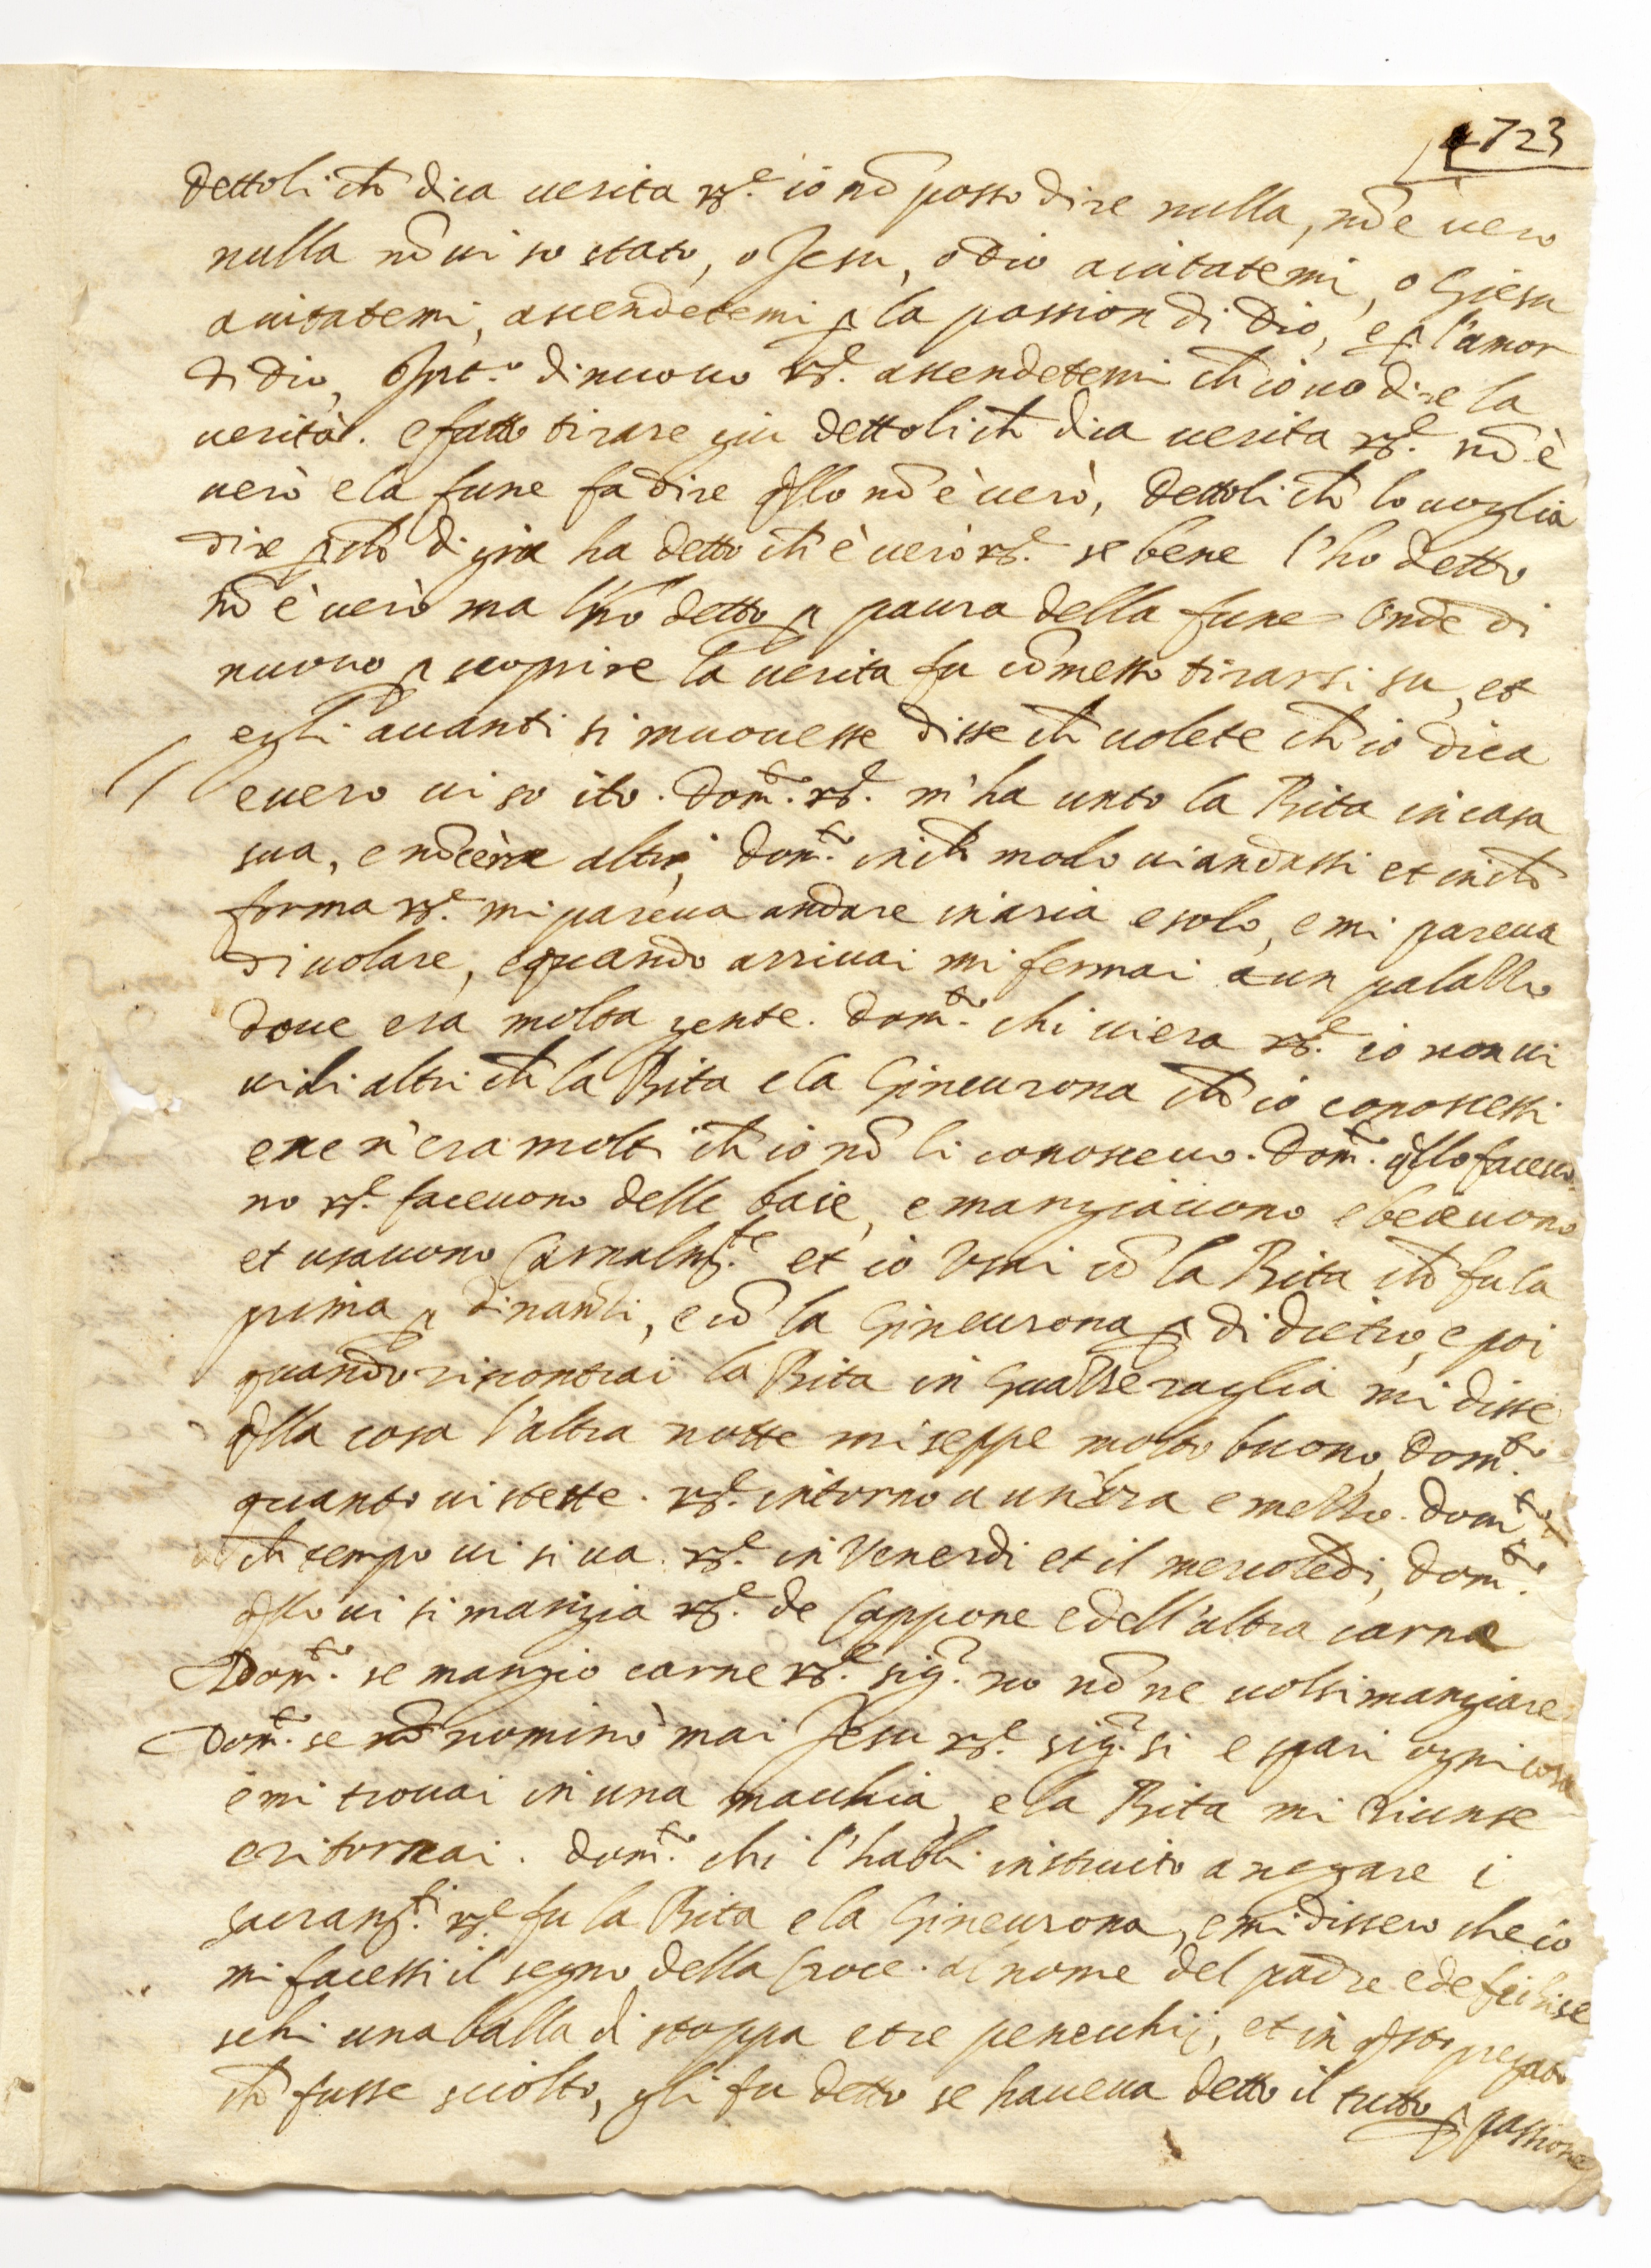 723
Dettoli ch̄ dica uerita rs.e io nō posso dire nulla, nō e uero
nulla nō ui so stato, o Jesu, o dio aiutatemi, o Giesu
aiutatemi, ascendetemi p la passion di Dio, e p l'amor
di dio, di nuouo rs.e ascendetemi ch̄ io uo dire la
uerità. e fatto tirare giu dettoli ch̄ dica uerita rs.e nō è
uerò e la fune fa dire qllo nō è uerò, Dettoli ch̄ lo uoglia
dire p ch̄ di gia ha detto ch̄ è uerò rs.e se bene l'ho detto
nō è uerò ma l'ho detto p paura della fune Onde di
nuouo p scoprire la uerita fu cōmesso tirarsi su, et
egli auanti si muouesse disse ch̄ uolete ch̄ io dica
e uero ui so ito. Dom.to rs.e m'ha unto la Rita in casa
sua, e nō cèra altri, Dom.to in ch̄ modo ui andassi et in ch̄
forma rs.e mi pareua andare in aria e solo, e mi pareua
di uolare, e quando arriuai mi fermai a un palazzo
doue era molta gente. Dom.to chi ui era rs.e io non ui
uidi altri ch̄ la Rita e la Gineurona ch̄ io conoscessi
e ne n'era molti ch̄ io nō li conosceuo. Dom.to qllo faceuo
no rs.e faceuono delle baie, e mangiauono e beeuono
et usauono Carnalm.te et io Usai cō la Rita ch̄ fu la
prima p dinanzi, e cō la Gineurona p di dietro, e poi
quando riscontrai la Rita in Gualseraglia mi disse
qlla cosa l'altra notte mi seppe molto buono, Dom.to
quanto ui stette. rs.e intorno a un'ora e mezzo. Dom.to
ch̄ tempo ui si ua. rs.e in Venerdi et il mercoledi, Dom.to
qllo ui si mangia rs.e de Cappone e dell'altra carne
Dom.to se mangio carne rs.e sig.r no nō ne uolsi mangiare
Dom.to se nō nominò mai Jesu rs.e sig.r si e spari ogni cosa
e mi trouai in una macchia, e la Rita mi riunse
e ritornai. Dom.to chi l'habbi instruito a negare i
sacram.ti rs.e fu la Rita e la Gineurona, e mi dissero che io
mi facessi il segno della Croce. al nome del padre e de
una balla di stoppa e tre penecchij, et in qsto pregato
ch̄ fusse sciolto, gli fu detto se haueua detto il tutto p passione